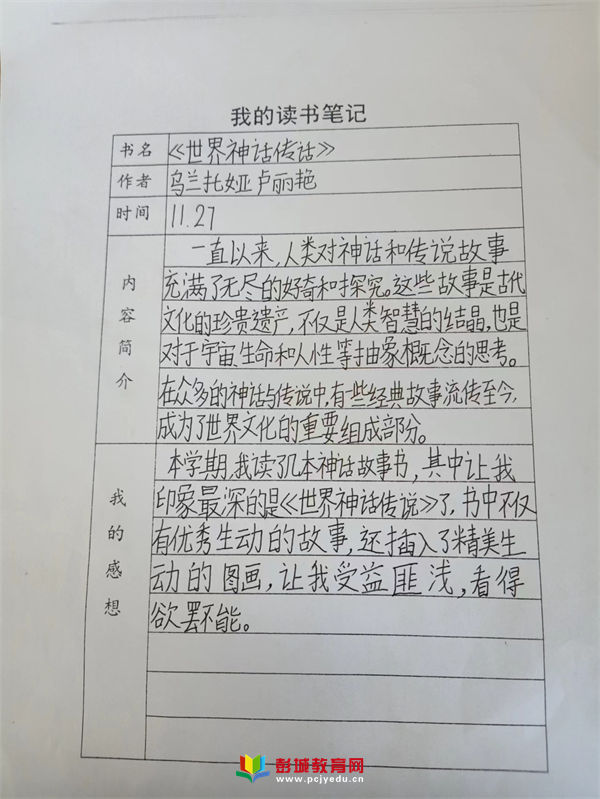 我的读书笔记
书名 《世界神话传话》
作者 乌兰托娅 卢丽艳
时间 11.27
内容简介
一直以来,人类对神话和传说故事
充满了无尽的好奇和探究。这些故事是古代
文化的珍贵遗产,不仅是人类智慧的结晶,也是
对于宇宙生命和人性等抽象概念的思考。
在众多的神话与传说中,有些经典故事流传至今,
成为了世界文化的重要组成部分。
我的感想
本学期,我读了几本神话故事书,其中让我
印象最深的是《世界神话传说》了,书中不仅
有优秀生动的故事,还插入了精美生
动的图画,让我受益匪浅,看得
欲罢不能。
彭城教育网
www.pcjyedu.cn